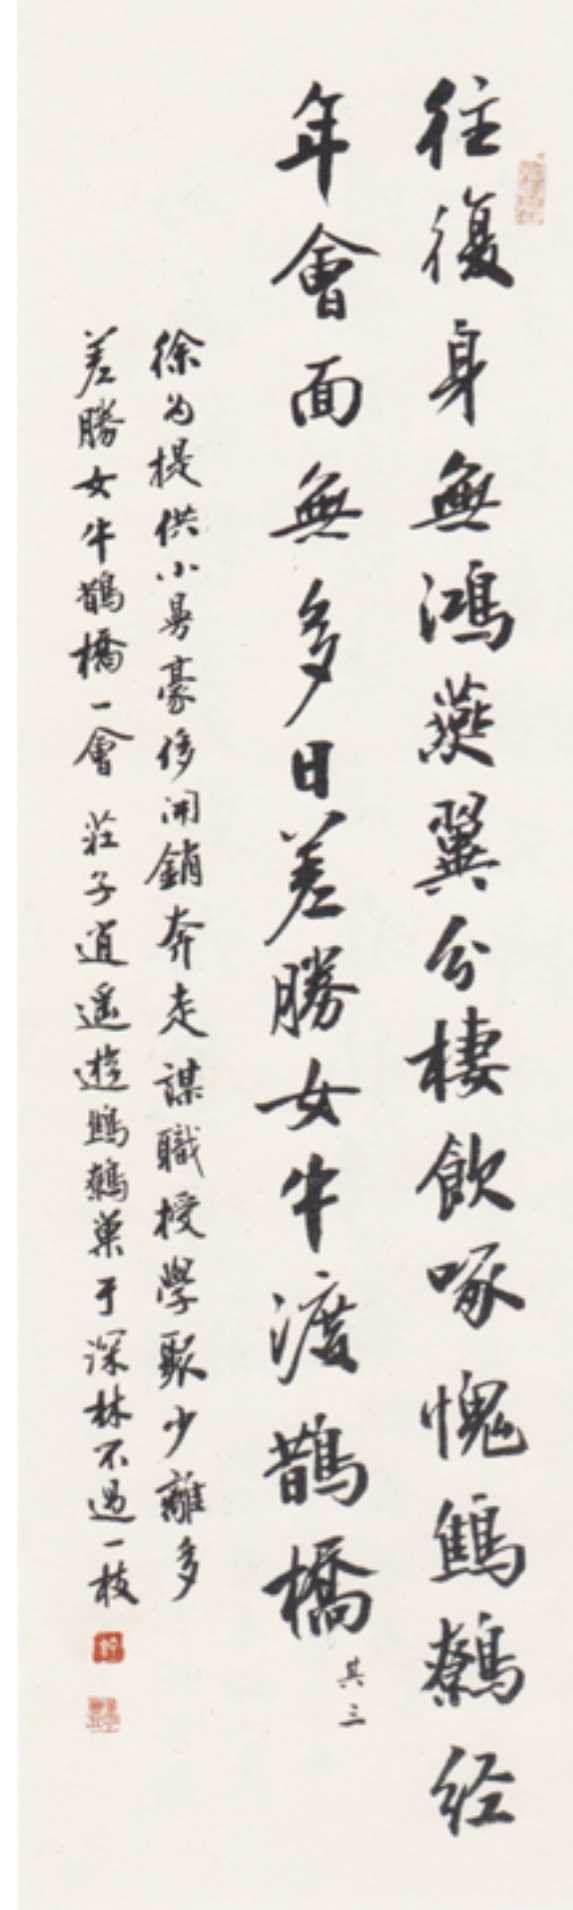 往復身無鴻燕翼分棲飲啄愧鷦鷯経
年會面無多日差勝女牛渡鵲橋
其三
徐為提供小勇豪侈開銷奔走謀職授學聚少離多
差勝女牛鵲橋一會 莊子逍遙遊鷦鷯巢于深林不過一枝